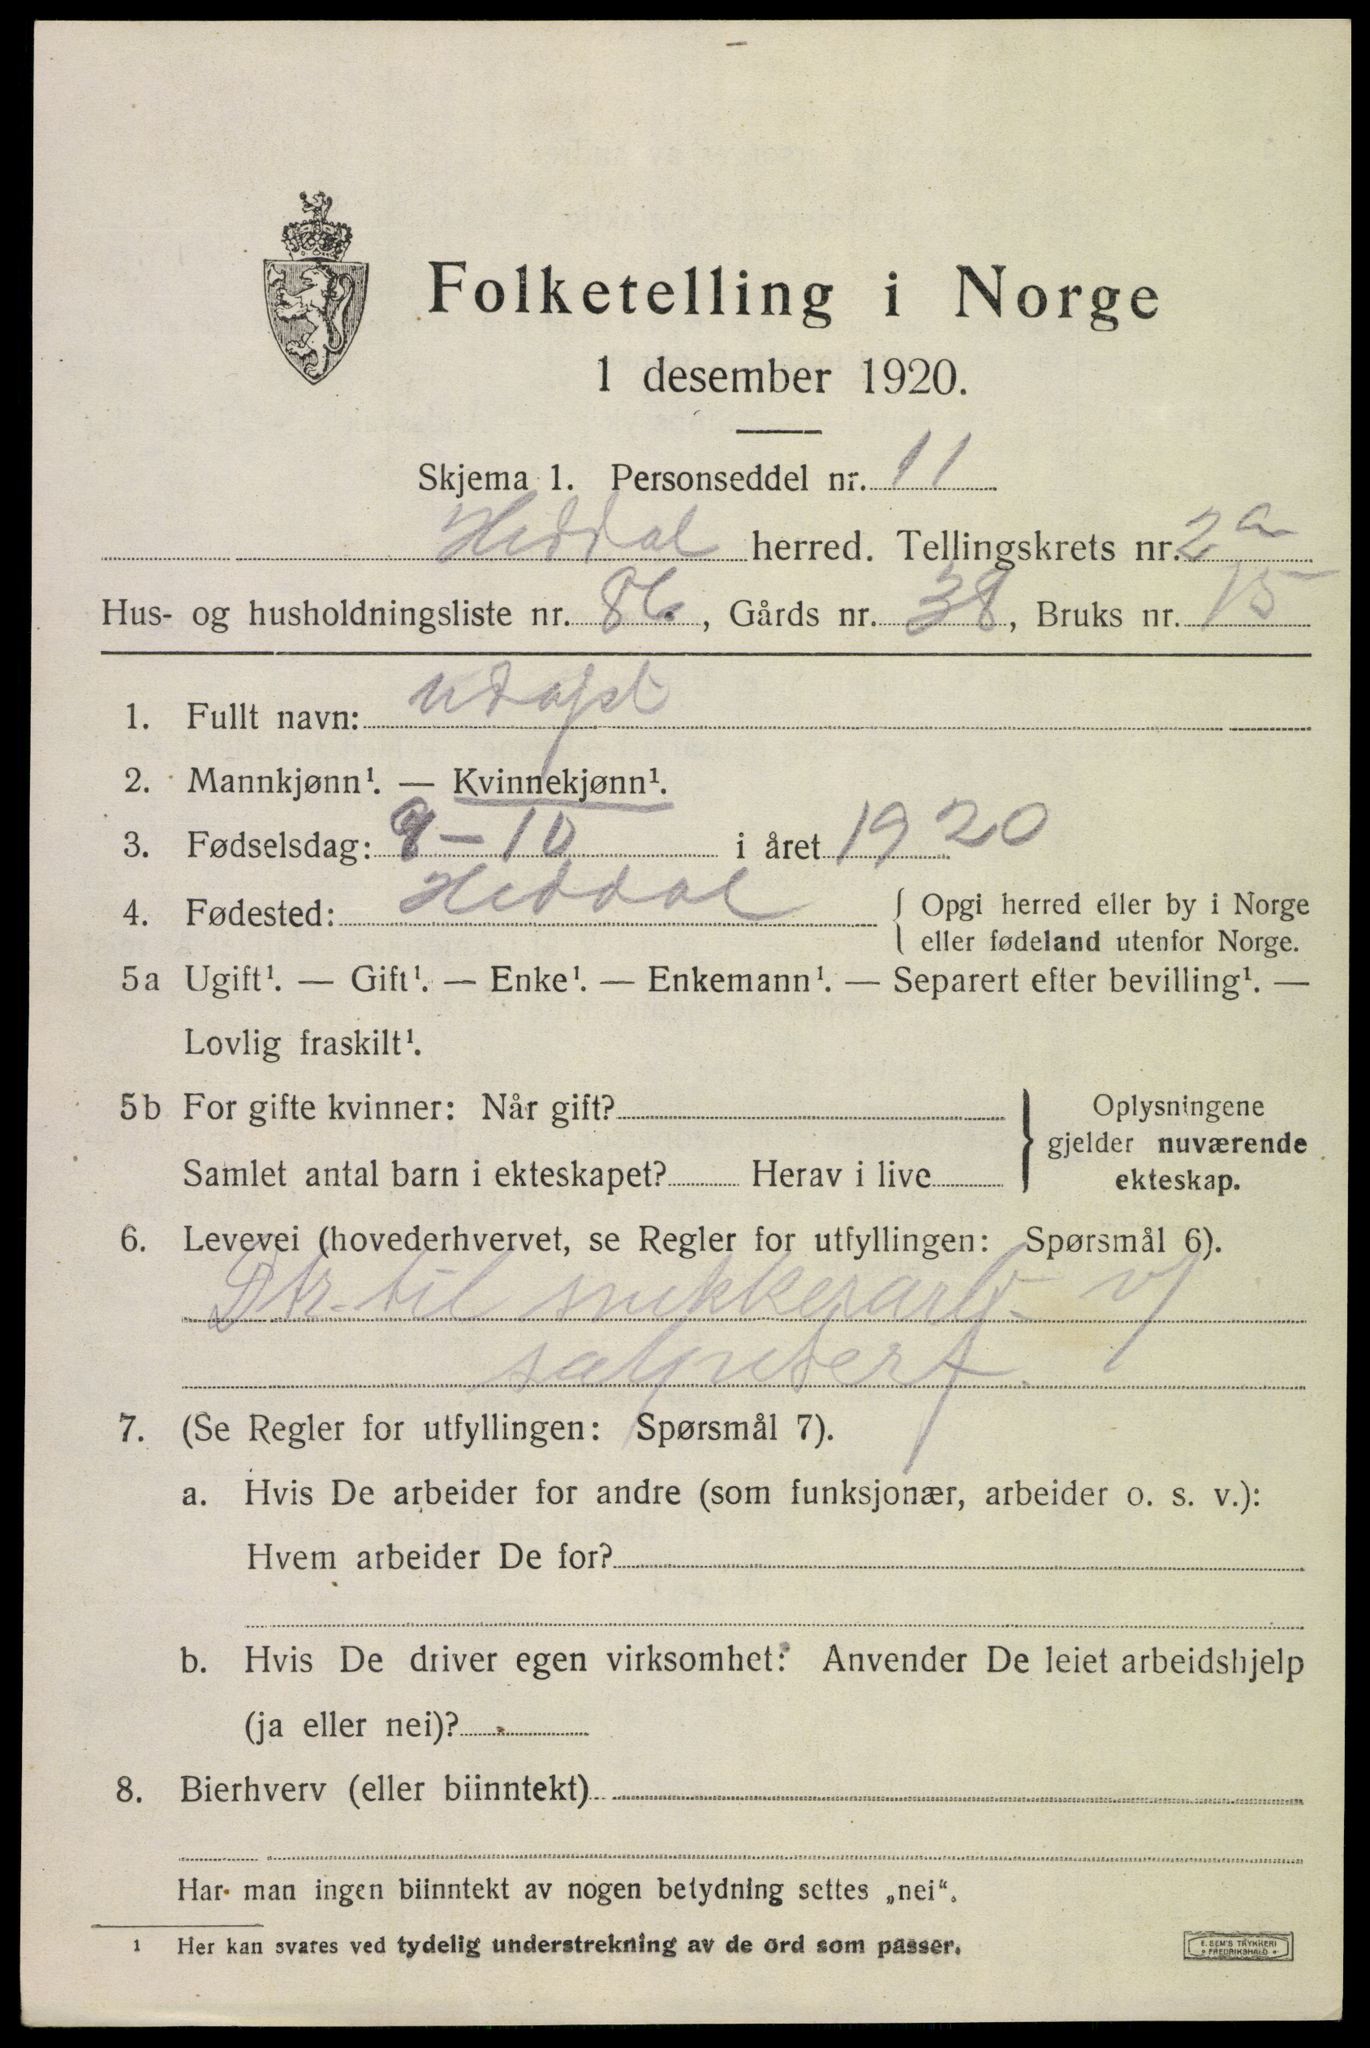 Folketelling i Norge
1 desember 1920.
Skjema 1. Personseddel nr. 11
Heddal herred. Tellingskrets nr. 2a
Hus- og husholdningsliste nr. 86, Gårds nr. 38, Bruks nr. 15
1. Fullt navn: Udøpt
2. Mannkjønn¹. — Kvinnekjønn¹.
3. Fødselsdag: 9-10 i året 1920
4. Fødested: Heddal { Opgi herred eller by i Norge
eller fødeland utenfor Norge.
5a Ugift¹. — Gift¹. — Enke¹. — Enkemann¹. — Separert efter bevilling¹. —
Lovlig fraskilt¹.
5b For gifte kvinner: Når gift? } Oplysningene
gjelder nuværende
Samlet antal barn i ekteskapet? Herav i live ekteskap.
6. Levevei (hovederhvervet, se Regler for utfyllingen: Spørsmål 6).
Dtr. til snekkerarb. v/
salpeterf.
7. (Se Regler for utfyllingen: Spørsmål 7).
a. Hvis De arbeider for andre (som funksjonær, arbeider o. s. v.):
Hvem arbeider De for?
b. Hvis De driver egen virksomhet: Anvender De leiet arbeidshjelp
(ja eller nei)?
8. Bierhverv (eller biinntekt)
Har man ingen biinntekt av nogen betydning settes „nei“.
¹ Her kan svares ved tydelig understrekning av de ord som passer.
E. SEM'S TRYKKERI
FREDRIKSHALD